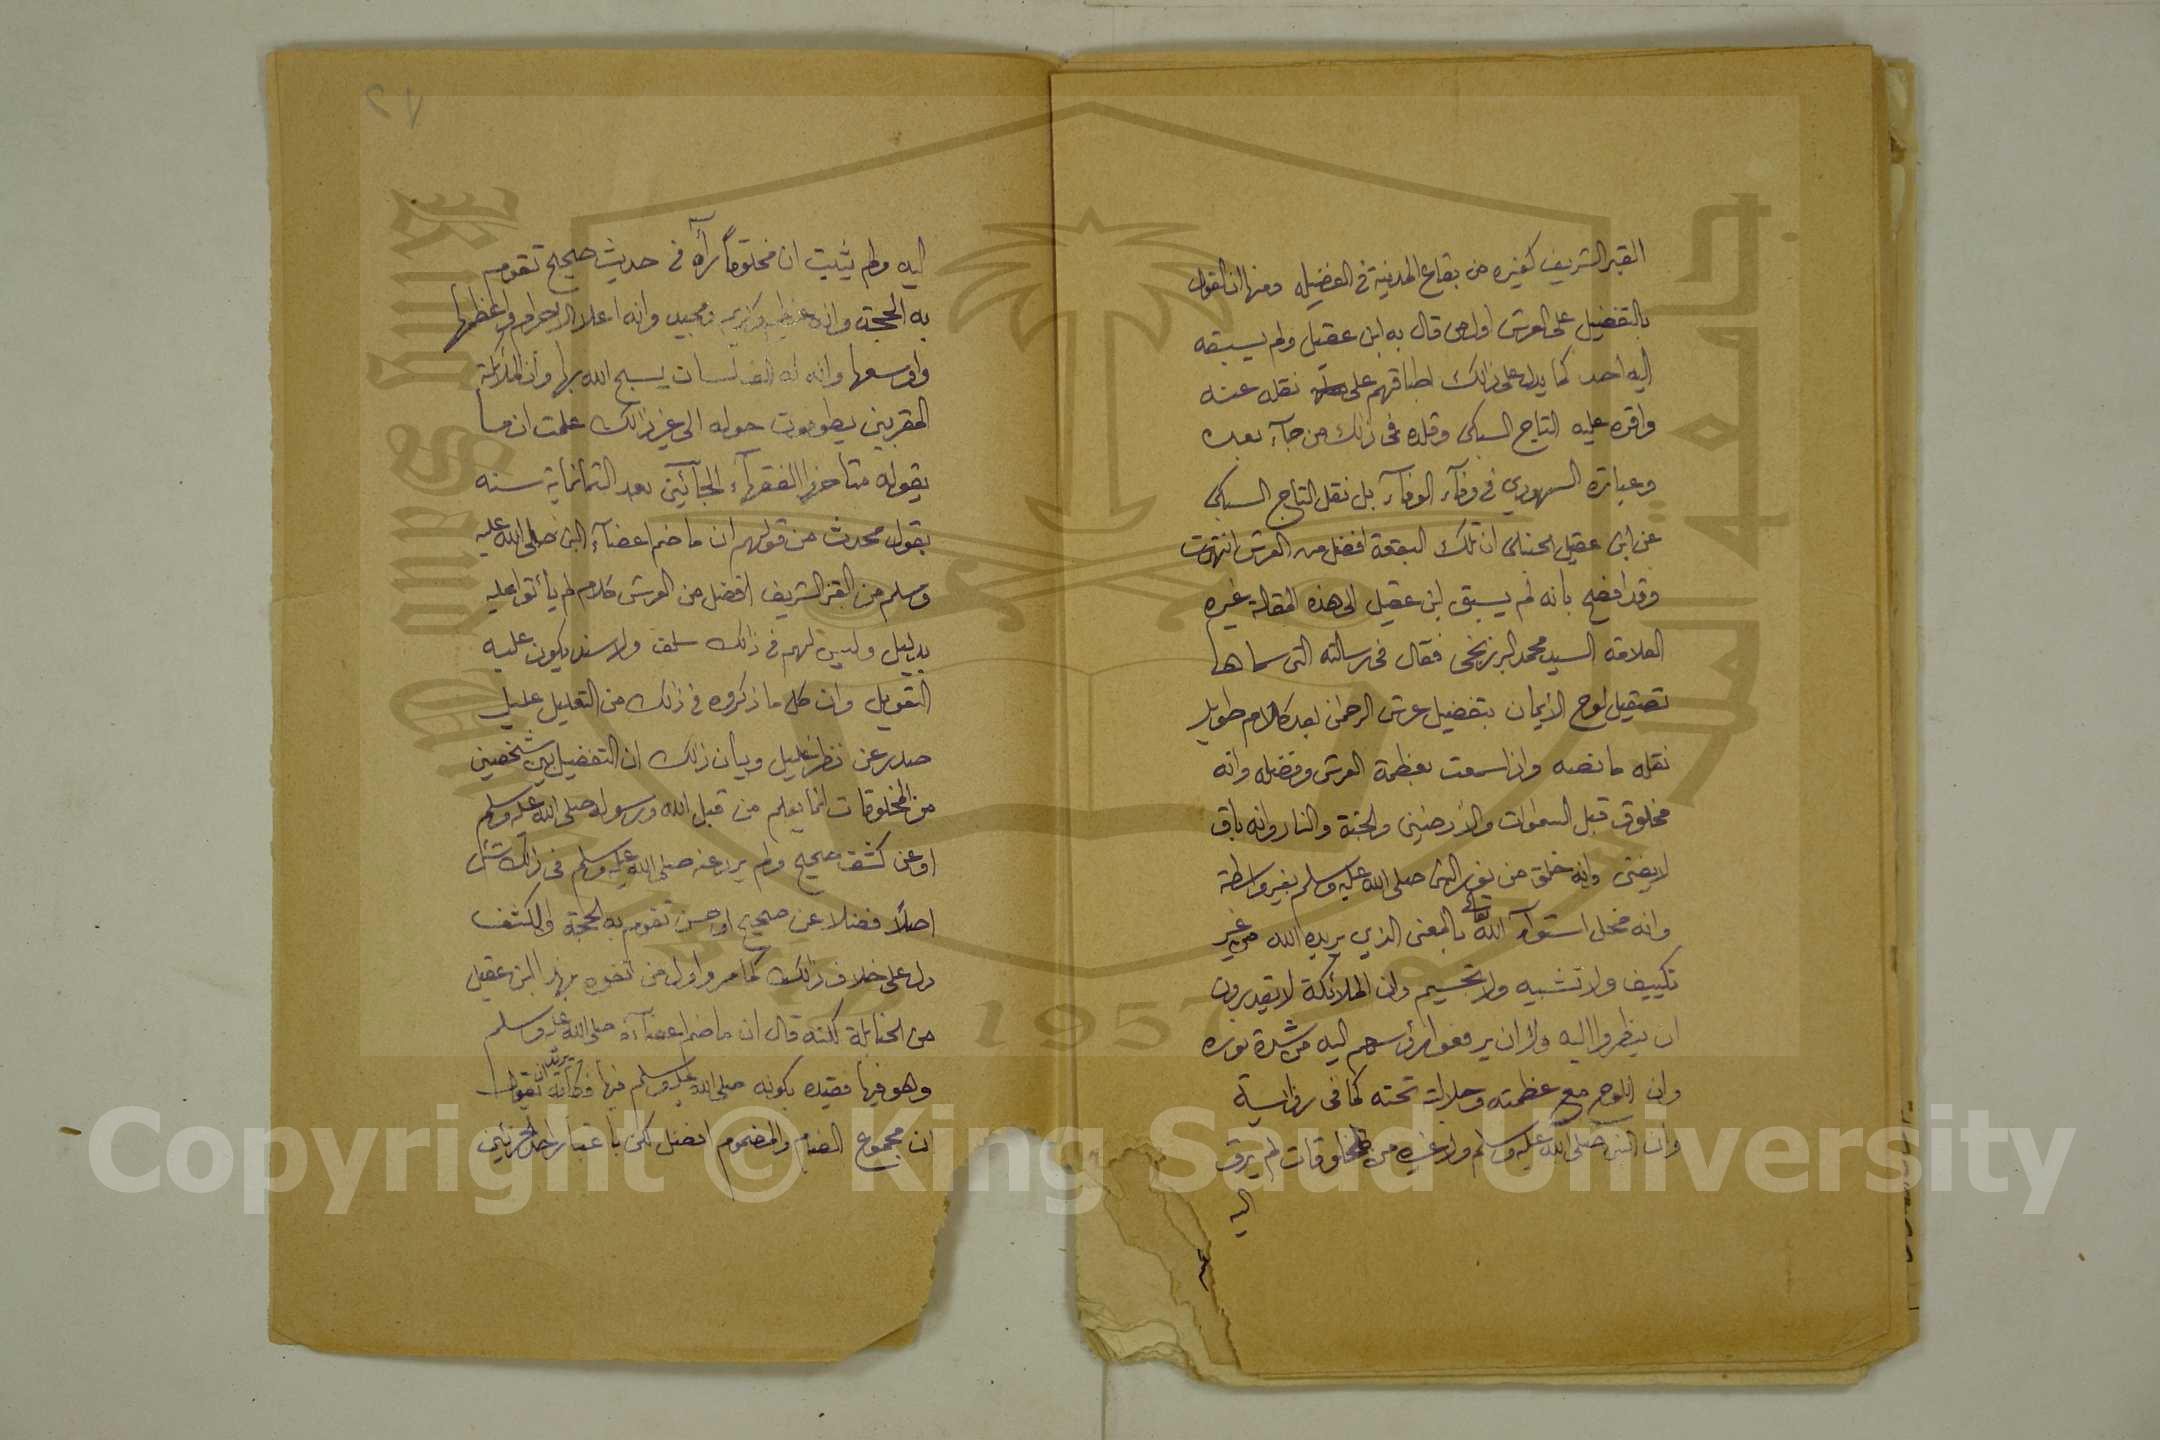 القبر الشريف كغيره من بقاع المدينة في الفضيله ومنها ان القول
بالتفضيل على العرش اول من قال به ابن عقيل ولم يسبقه
اليه احد كما يدل على ذالك اطباقهم على نقله عنه
واقره عليه التاج السبكي وقلده في ذلك من جآء بعده
وعبارة السمهودي في وفآء الوفآء بل نقل التاج السبكي
عن ابن عقيل الحنبلي ان تلك البقعة افضل من العرش انتهت
وقد افصح بانه لم يسبق ابن عقيل الى هذه المقالة غيره
العلامة السيد محمد البرزنجي فقال في رسالته التي سماها
تصقيل لوح الايمان بتفضيل عرش الرحمن بعد كلام طويل
نقله ما نصه واذا سمعت بعظمة العرش وفضله وانه
مخلوق قبل السموات والأرضين والجنة والنار وانه باق
لا يفنى وانه خلق من نور النبي صلى الله عليه وسلم بغير واسطة
وانه محل استوآء الله تعالى بالمعنى الذي يريده الله من غير
تكييف ولا تشبيه ولا تجسيم وان الملائكة لا يقدرون
ان ينظروا اليه ولا ان يرفعوا رؤسهم اليه من شدة نوره
وان اللوح مع عظمته وجلالته تحته كما في رواية
وان النبي صلى الله عليه وسلم ولا غيره من المخلوقات لم يرق
اليه
٢١
اليه ولم يثبت ان مخلوقا رآه في حديث صحيح تقوم
به الحجة وانه عظيم وكريم ومجيد وانه اعلا الاجرام واعظمها
واوسعها وانه له الف لسان يسبح الله بها وأن الملائكة
المقربين يطوفون حوله الى غير ذالك علمت ان ما
يقوله متأخروا الفقهآء الجآئين بعد الثمانماية سنه
بقول محدث من قولهم ان ما ضم اعضآء النبي صلى الله عليه
وسلم من القبر الشريف افضل من العرش كلام لم يأتوا عليه
بدليل وليس لهم في ذالك سلف ولا سند يكون عليه
التعويل وان كل ما ذكروه في ذالك من التعليل عليل
صدر عن نظر كليل وبيان ذالك ان التفضيل بين شخصين
من المخلوقات انما يعلم من قبل الله ورسوله صلى الله عليه وسلم
او عن كشف صحيح ولم يرد عنه صلى الله عليه وسلم في ذالك شئ
اصلا فضلا عن صحيح او حسن تقوم به الحجة والكشف
دل على خلاف ذالك كما مر واول من تفوه بهذا ابن عقيل
من الحنابلة لكنه قال ان ما ضم اعضآءه صلى الله عليه وسلم
وهو فيها فقيده بكونه صلى الله عليه وسلم فيها فكأنه يريد ان يقول
ان مجموع الضام والمضموم افضل لكن باعتبار احد الجزئين
Copyright © King Saud University
1957